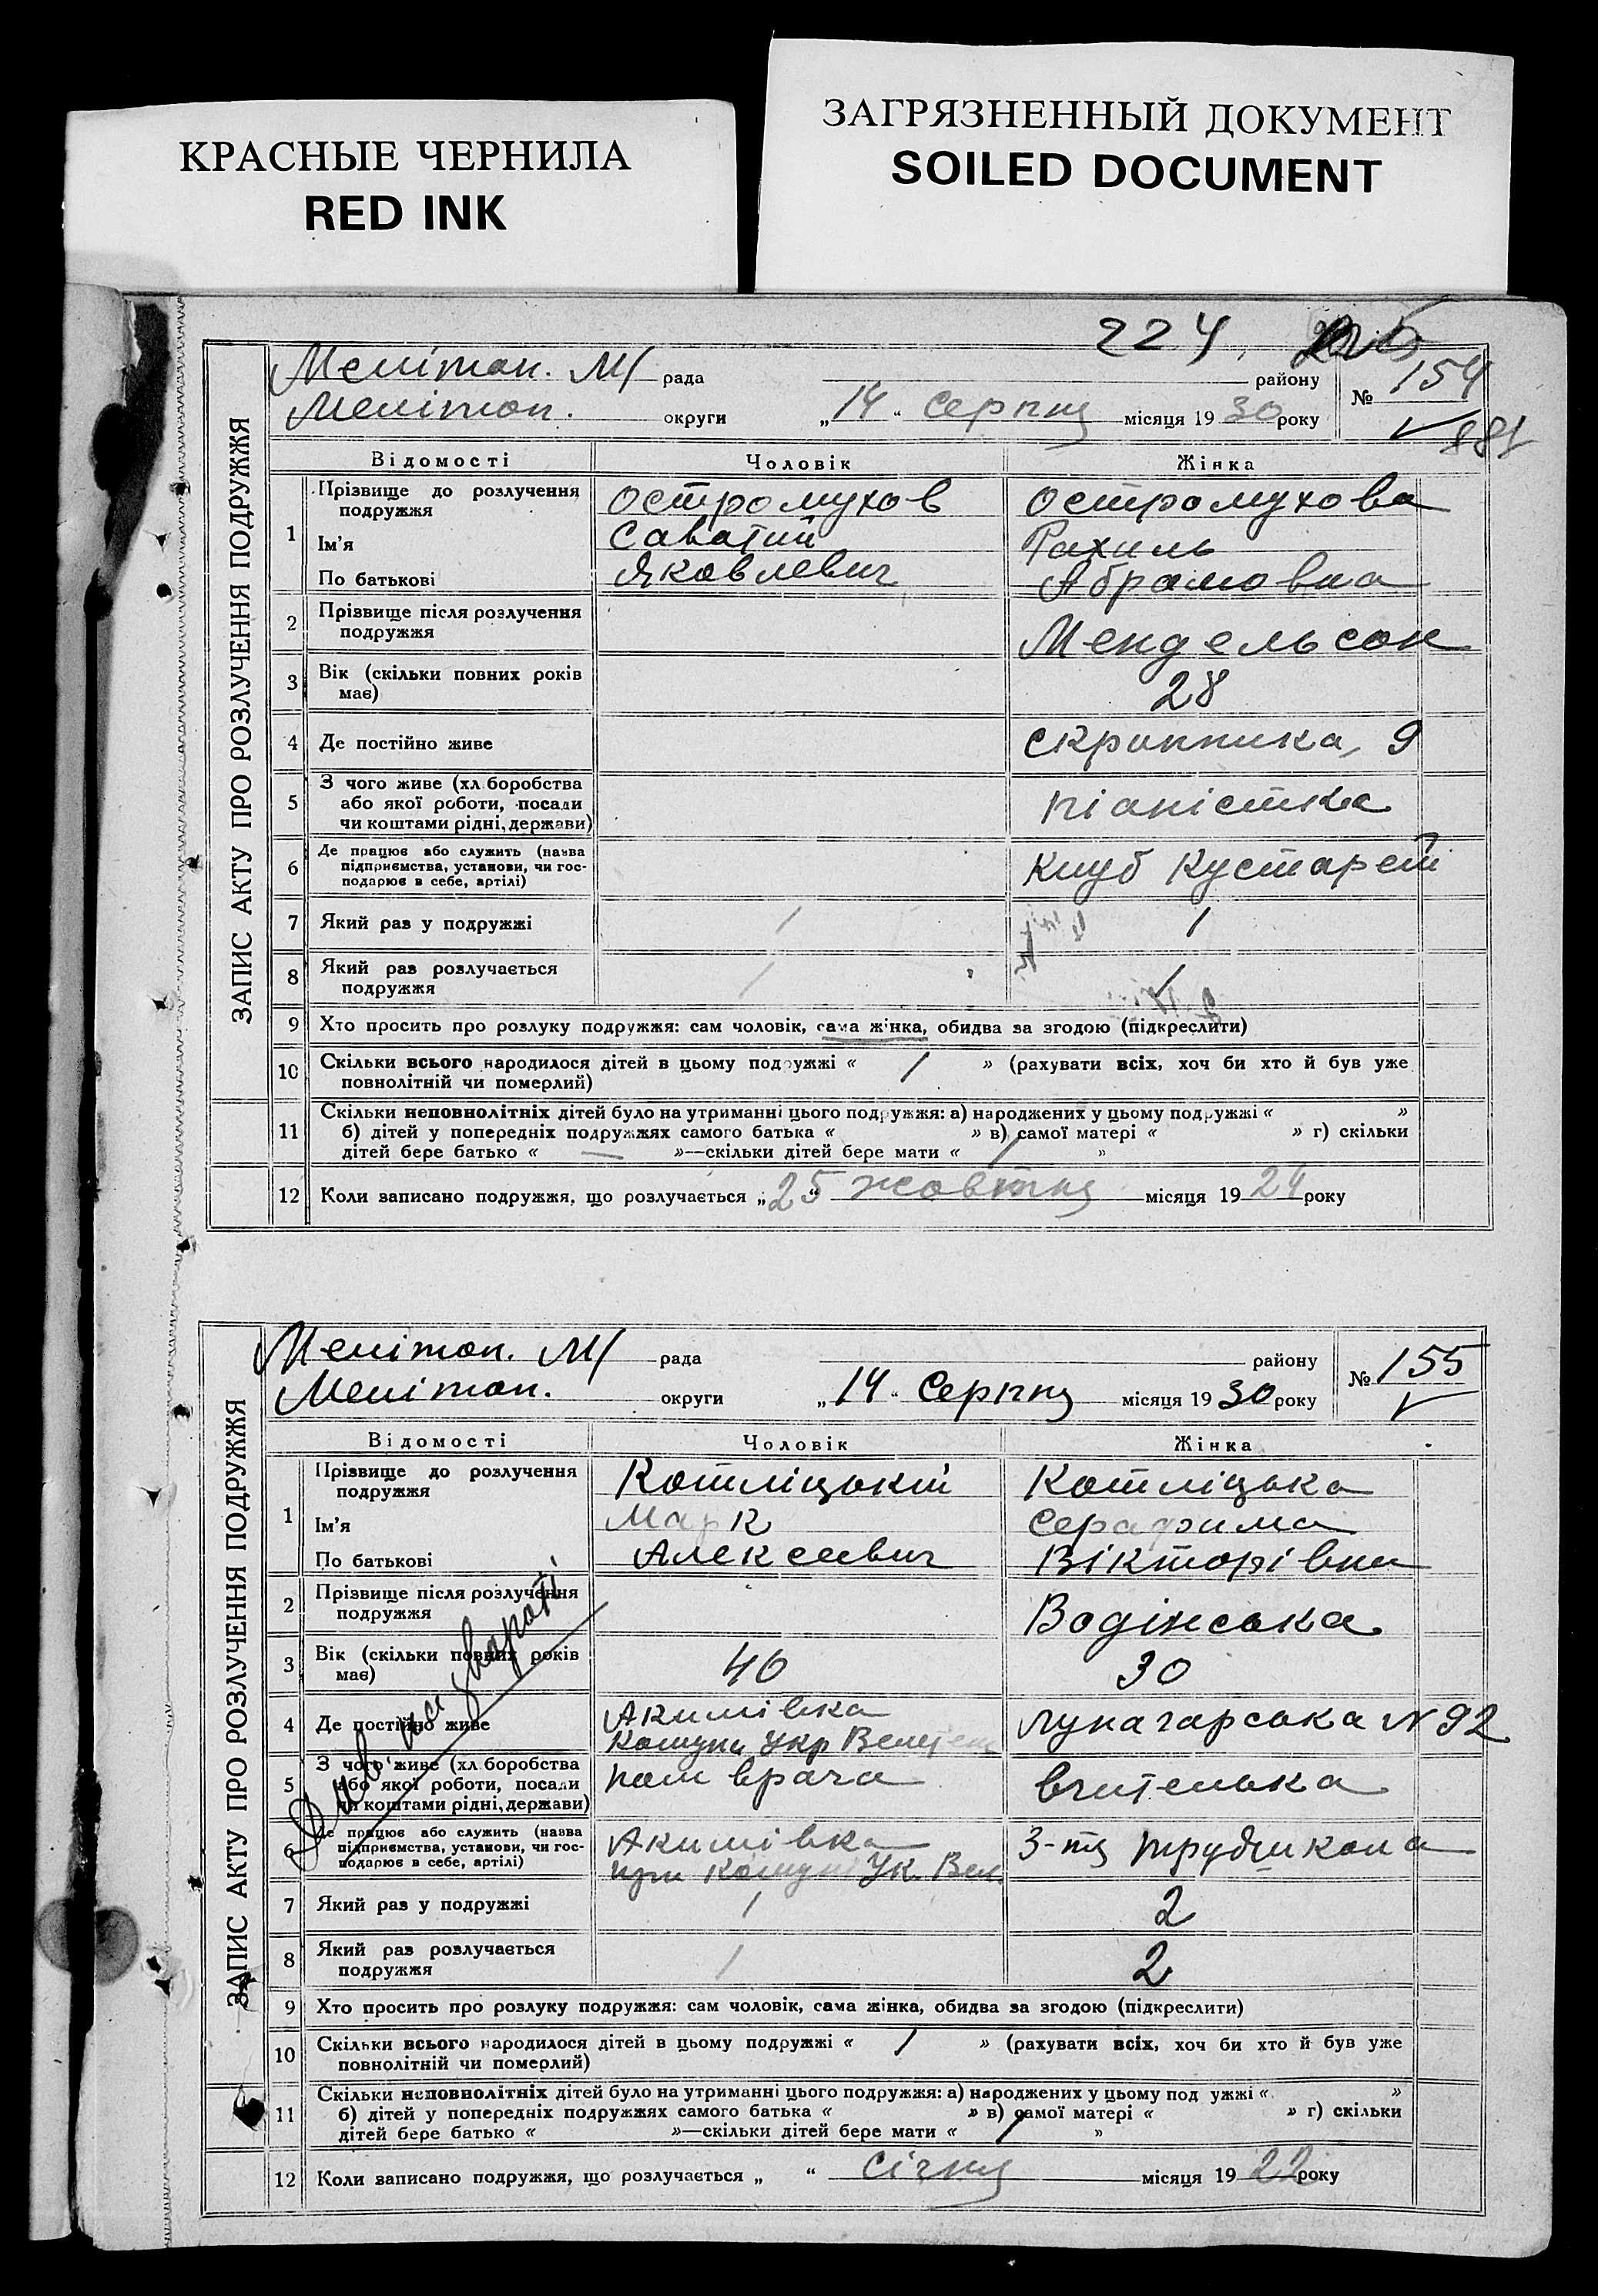 КРАСНЫЕ ЧЕРНИЛА
RED INK
ЗАГРЯЗНЕННЫЙ ДОКУМЕНТ
SOILED DOCUMENT
224
ЗАПИС АКТУ ПРО РОЗЛУЧЕННЯ ПОДРУЖЖЯ
Мелітоп. М/ рада району № 154
Мелітоп. округи „14“ Серпня місяця 1930 року
881
Відомості Чоловік Жінка
1 Прізвище до розлучення подружжя Остромухов Остромухова
Ім’я Саватий Рахиль
По батькові Яковлевич Абрамовна
2 Прізвище після розлучення подружжя Мендельсон
3 Вік (скільки повних років має) 28
4 Де постійно живе Скрипника, 9
5 З чого живе (хл.боробства або якої роботи, посади чи коштами рідні, держави) піаністка
6 Де працює або служить (назва підприємства, установи, чи господарює в себе, артілі) Клуб Кустарей
7 Який раз у подружжі 1 1
8 Який раз розлучається подружжя 1 1
9 Хто просить про розлуку подружжя: сам чоловік, сама жінка, обидва за згодою (підкреслити)
10 Скільки всього народилося дітей в цьому подружжі « 1 » (рахувати всіх, хоч би хто й був уже
повнолітній чи померлий)
11 Скільки неповнолітніх дітей було на утриманні цього подружжя: а) народжених у цьому подружжі « »
б) дітей у попередніх подружжях самого батька « » в) самої матері « » г) скільки
дітей бере батько « — »—скільки дітей бере мати « 1 »
12 Коли записано подружжя, що розлучається „25“ жовтня місяця 1924 року
ЗАПИС АКТУ ПРО РОЗЛУЧЕННЯ ПОДРУЖЖЯ
Мелітоп. М/ рада району № 155
Мелітоп. округи „14“ Серпня місяця 1930 року
Відомості Чоловік Жінка
1 Прізвище до розлучення подружжя Котліцькій Котліцька
Ім’я Марк Серафима
По батькові Алексеевич Вікторівна
2 Прізвище після розлучення подружжя Водінська
3 Вік (скільки повних років має) 40 30
4 Де постійно живе Акимівка Луначарська № 92
Комуна Укр
5 З чого живе (хл.боробства або якої роботи, посади чи коштами рідні, держави) пом врача вчителька
6 Де працює або служить (назва підприємства, установи, чи господарює в себе, артілі) Акимівка 3-тя трудшкола
при Комуні Ук.
7 Який раз у подружжі 1 2
8 Який раз розлучається подружжя 1 2
9 Хто просить про розлуку подружжя: сам чоловік, сама жінка, обидва за згодою (підкреслити)
10 Скільки всього народилося дітей в цьому подружжі « 1 » (рахувати всіх, хоч би хто й був уже
повнолітній чи померлий)
11 Скільки неповнолітніх дітей було на утриманні цього подружжя: а) народжених у цьому под ужжі « »
б) дітей у попередніх подружжях самого батька « » в) самої матері « » г) скільки
дітей бере батько « »—скільки дітей бере мати « 1 »
12 Коли записано подружжя, що розлучається „ “ Січня місяця 1922 року
Див на звороті